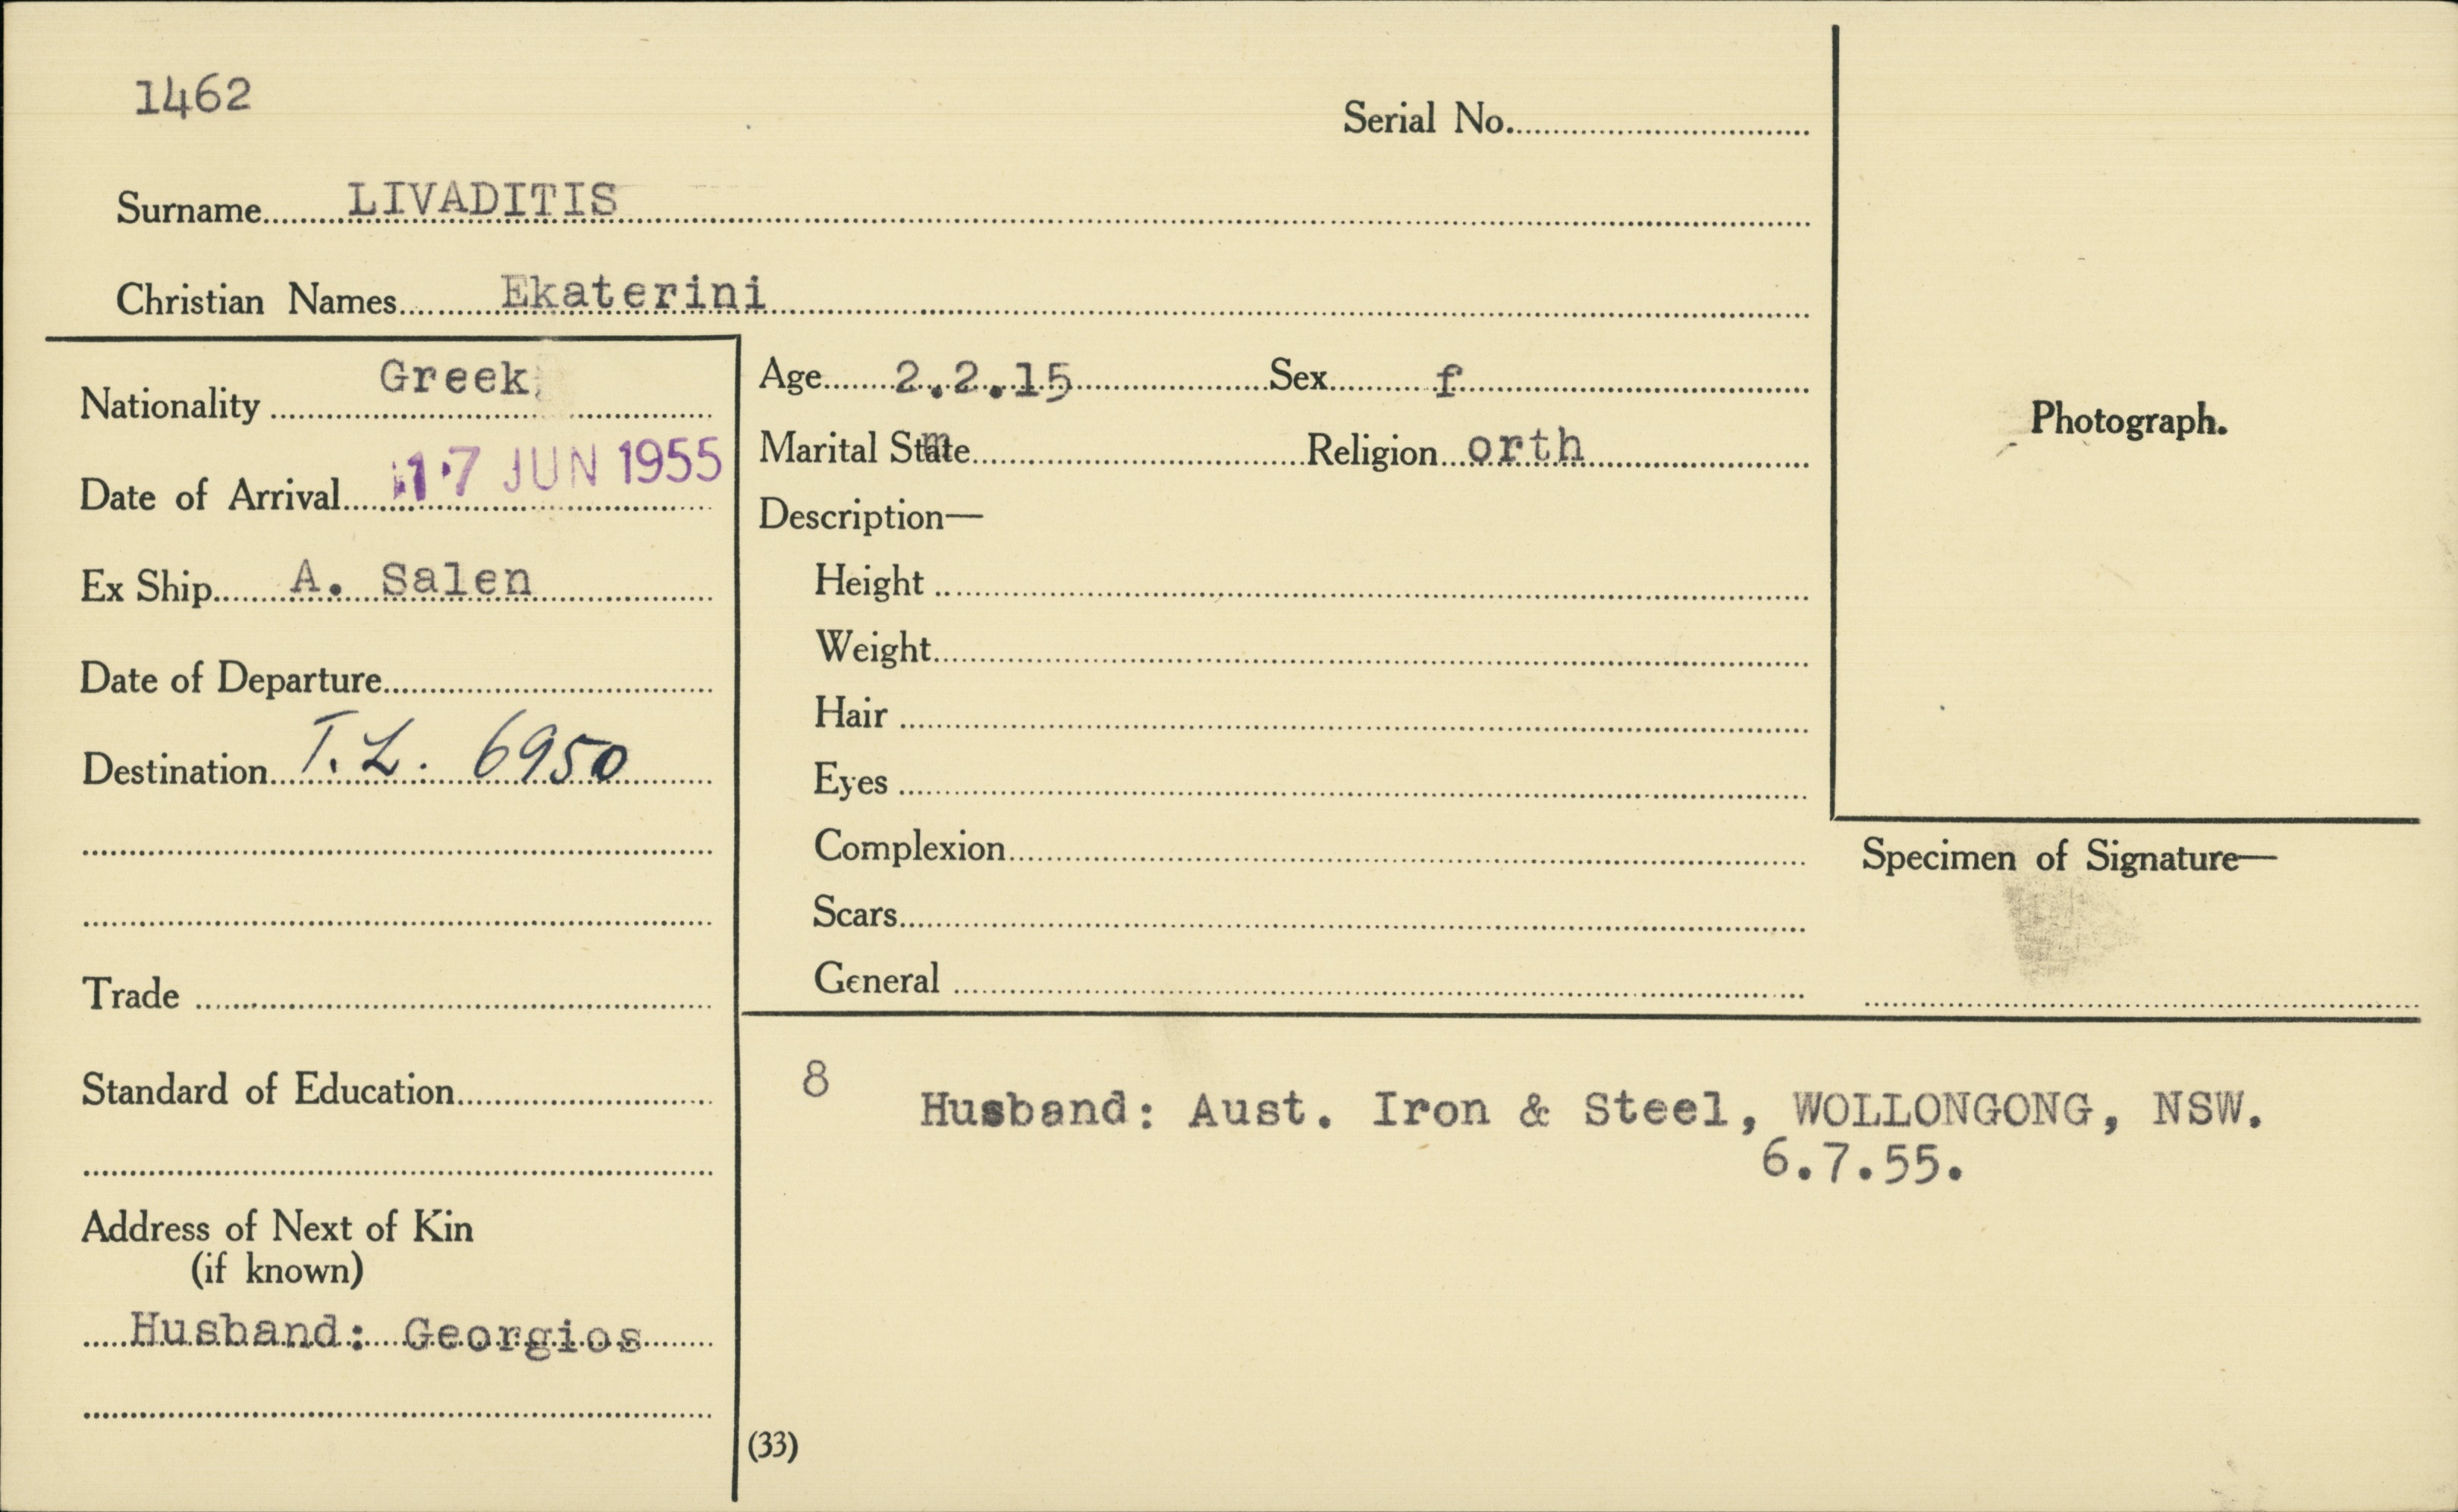 1462
Serial No.
Surname LIVADITIS
Christian Names Ekaterini
Nationality Greek
Date of Arrival 17 JUN 1955
Ex Ship A. Salen
Date of Departure
Destination T.L. 6950
Trade
Standard of Education
Address of Next of Kin
(if known)
Husband: Georgios
Age 2.2.15 Sex f
Marital State m Religion orth
Description—
Height
Weight
Hair
Eyes
Complexion
Scars
General
Photograph.
Specimen of Signature—
8
Husband: Aust. Iron & Steel, WOLLONGONG, NSW.
6.7.55.
(33)